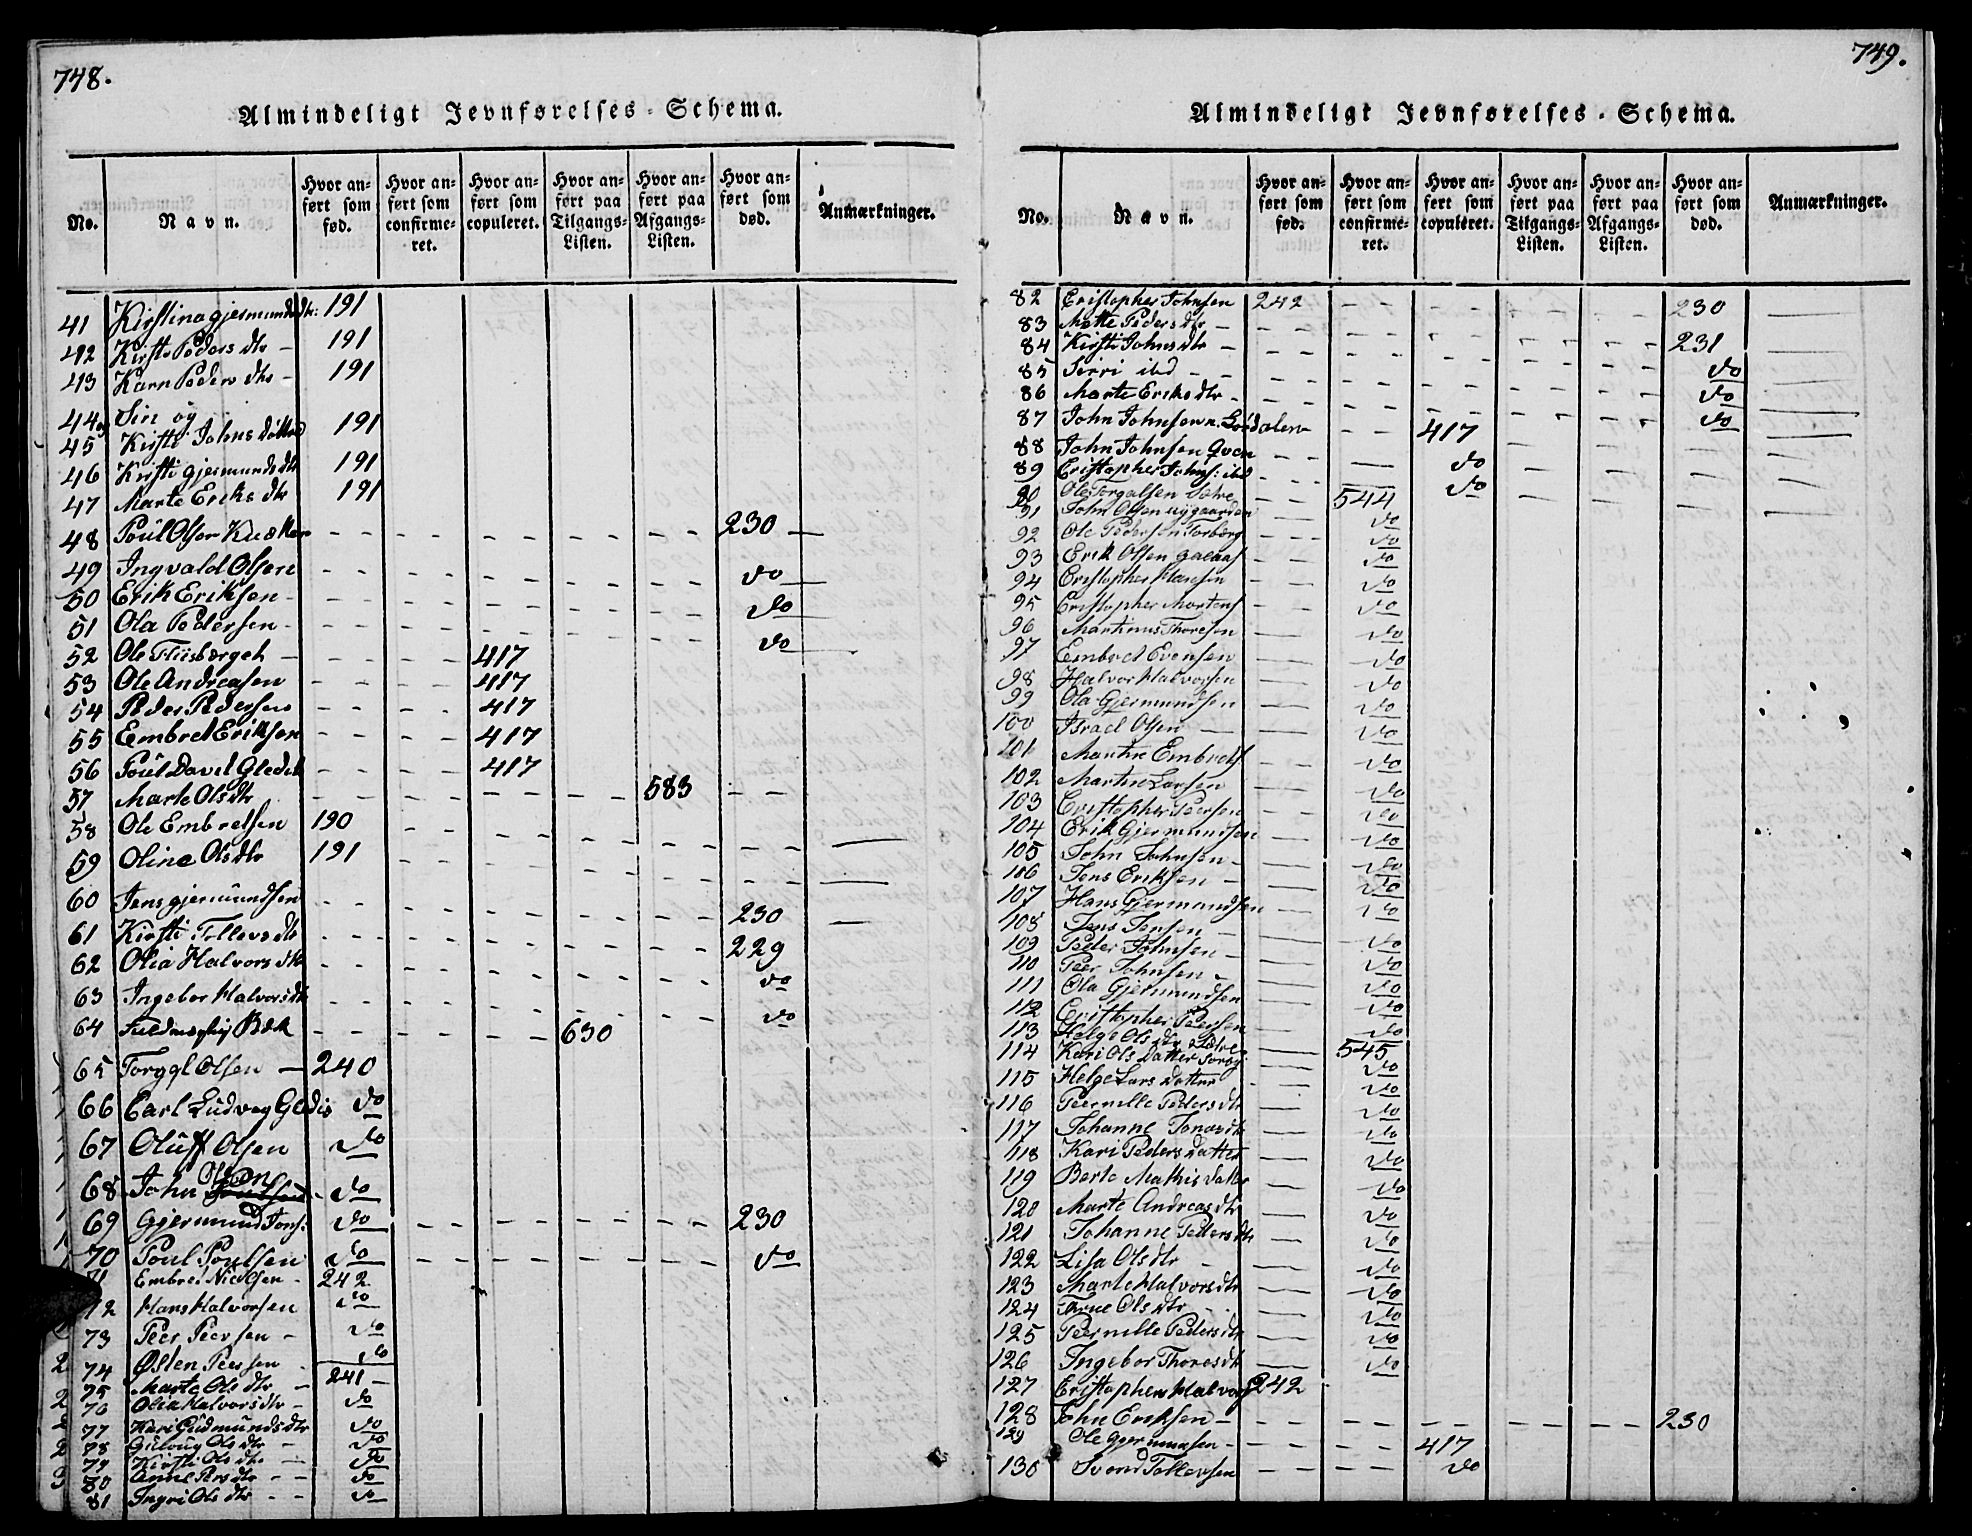 748.
Almindeligt Jevnførelses-Schema.
No. Navn. Hvor anført som fød. Hvor anført som confirmeret. Hvor anført som copuleret. Hvor anført paa Tilgangs-Listen. Hvor anført paa Afgangs-Listen. Hvor anført som død. Anmærkninger.
41 Kirstina gjermundsdtr: 191
42 Kirsti Peders dtr - 191
43 Karn Peders dtr - 191
44 og Siri og
45 Kirsti Johns døttre 191
46 Kirsti gjermunds dtr 191
47 Marte Eriks dtr 191
48 Poul Olsen 230
49 Ingvald Olsen do
50 Erik Eriksen - do
51 Ola Pedersen - do
52 Ole Fliisberget - 417
53 Ole Andreasen 417
54 Peder Pedersen 417
55 Embret Eriksen 417
56 Poul David 417
57 Marte Olsdtr 583
58 Ole Embretsen 190
59 Oline Olsdtr 191
60 Jens gjermundsen 230
61 Kirsti Tollevs dtr 229
62 Olia Halvors dtr do
63 Ingebor Halvorsdtr do
64 630
65 Torggl Olsen - 240
66 Carl Ludvig Gledis do
67 Oluff Olsen do
68 John Olsen do
69 Gjermund Jons: do 230
70 Poul Poulsen do do
71 Embret Nielsen - 242
72 Hans Halvorsen do
73 Peer Peersen - do
74 Østen Peersen do
75 Marte Ols dtr - 241 -
76 Olia Halvorsdtr - do
77 Kari Gudmundsdtr do
78 Ols dtr - do
79 Kirsti Ols dtr - do
80 Anne Pers dtr - - do
81 Ingri Ols dtr - - do
749.
Almindeligt Jevnførelses-Schema.
No. Navn. Hvor anført som fød. Hvor anført som confirmeret. Hvor anført som copuleret. Hvor anført paa Tilgangs-Listen. Hvor anført paa Afgangs-Listen. Hvor anført som død. Anmærkninger.
82 Cristopher Johnsen 242 230
83 Mette Peders dtr -
84 Kirsti Johns dtr - 231
85 Sirri ibd - - do
86 Marte Eriks dtr - do
87 John Johnsen 417 do
88 John Johnsen Qven do
89 Cristopher Johns: ibd do
90 Ole Torgalsen Sætre 544
91 John Olsen nygaarden do
92 Ole Pedersen Torberg do
93 Erik Olsen do
94 Cristopher Hansen do
95 Cristopher Mortens do
96 Martinus Thoresen do
97 Embret Evensen do
98 Halvor Halvorsen do
99 Ola Gjermundsen do
100 Israel Olsen - do
101 Martin Embrets do
102 Martin Larsen do
103 Cristopher Peersen do
104 Erik Gjermundsen do
105 John Johnsen - do
106 Jens Eriksen - do
107 Hans Gjermundsen do
108 Jens Jensen - do
109 Peder Johnsen - do
110 Peer Johnsen - do
111 Ola Gjermundsen do
112 Cristopher Peersen do
113 Helge Ols dtr Sætre 545
114 Kari Ols Datter do
115 Helge Lars Datter do
116 Peernille Peders dtr do
117 Johanne Jonas dtr do
118 Kari Peders Datter do
119 Berte Mathis Datter do
120 Marte Andreas dtr do
121 Johanne Peders dtr do
122 Lisa Ols dtr - do
123 Marte Halvors dtr do
124 Ols dtr do
125 Peernille Peders dtr do
126 Ingebor Thores dtr do
127 Cristopher Halvors 242
128 John Eriksen - 230
129 Ole gjermunsen - 417
130 Svend Tollevsen do